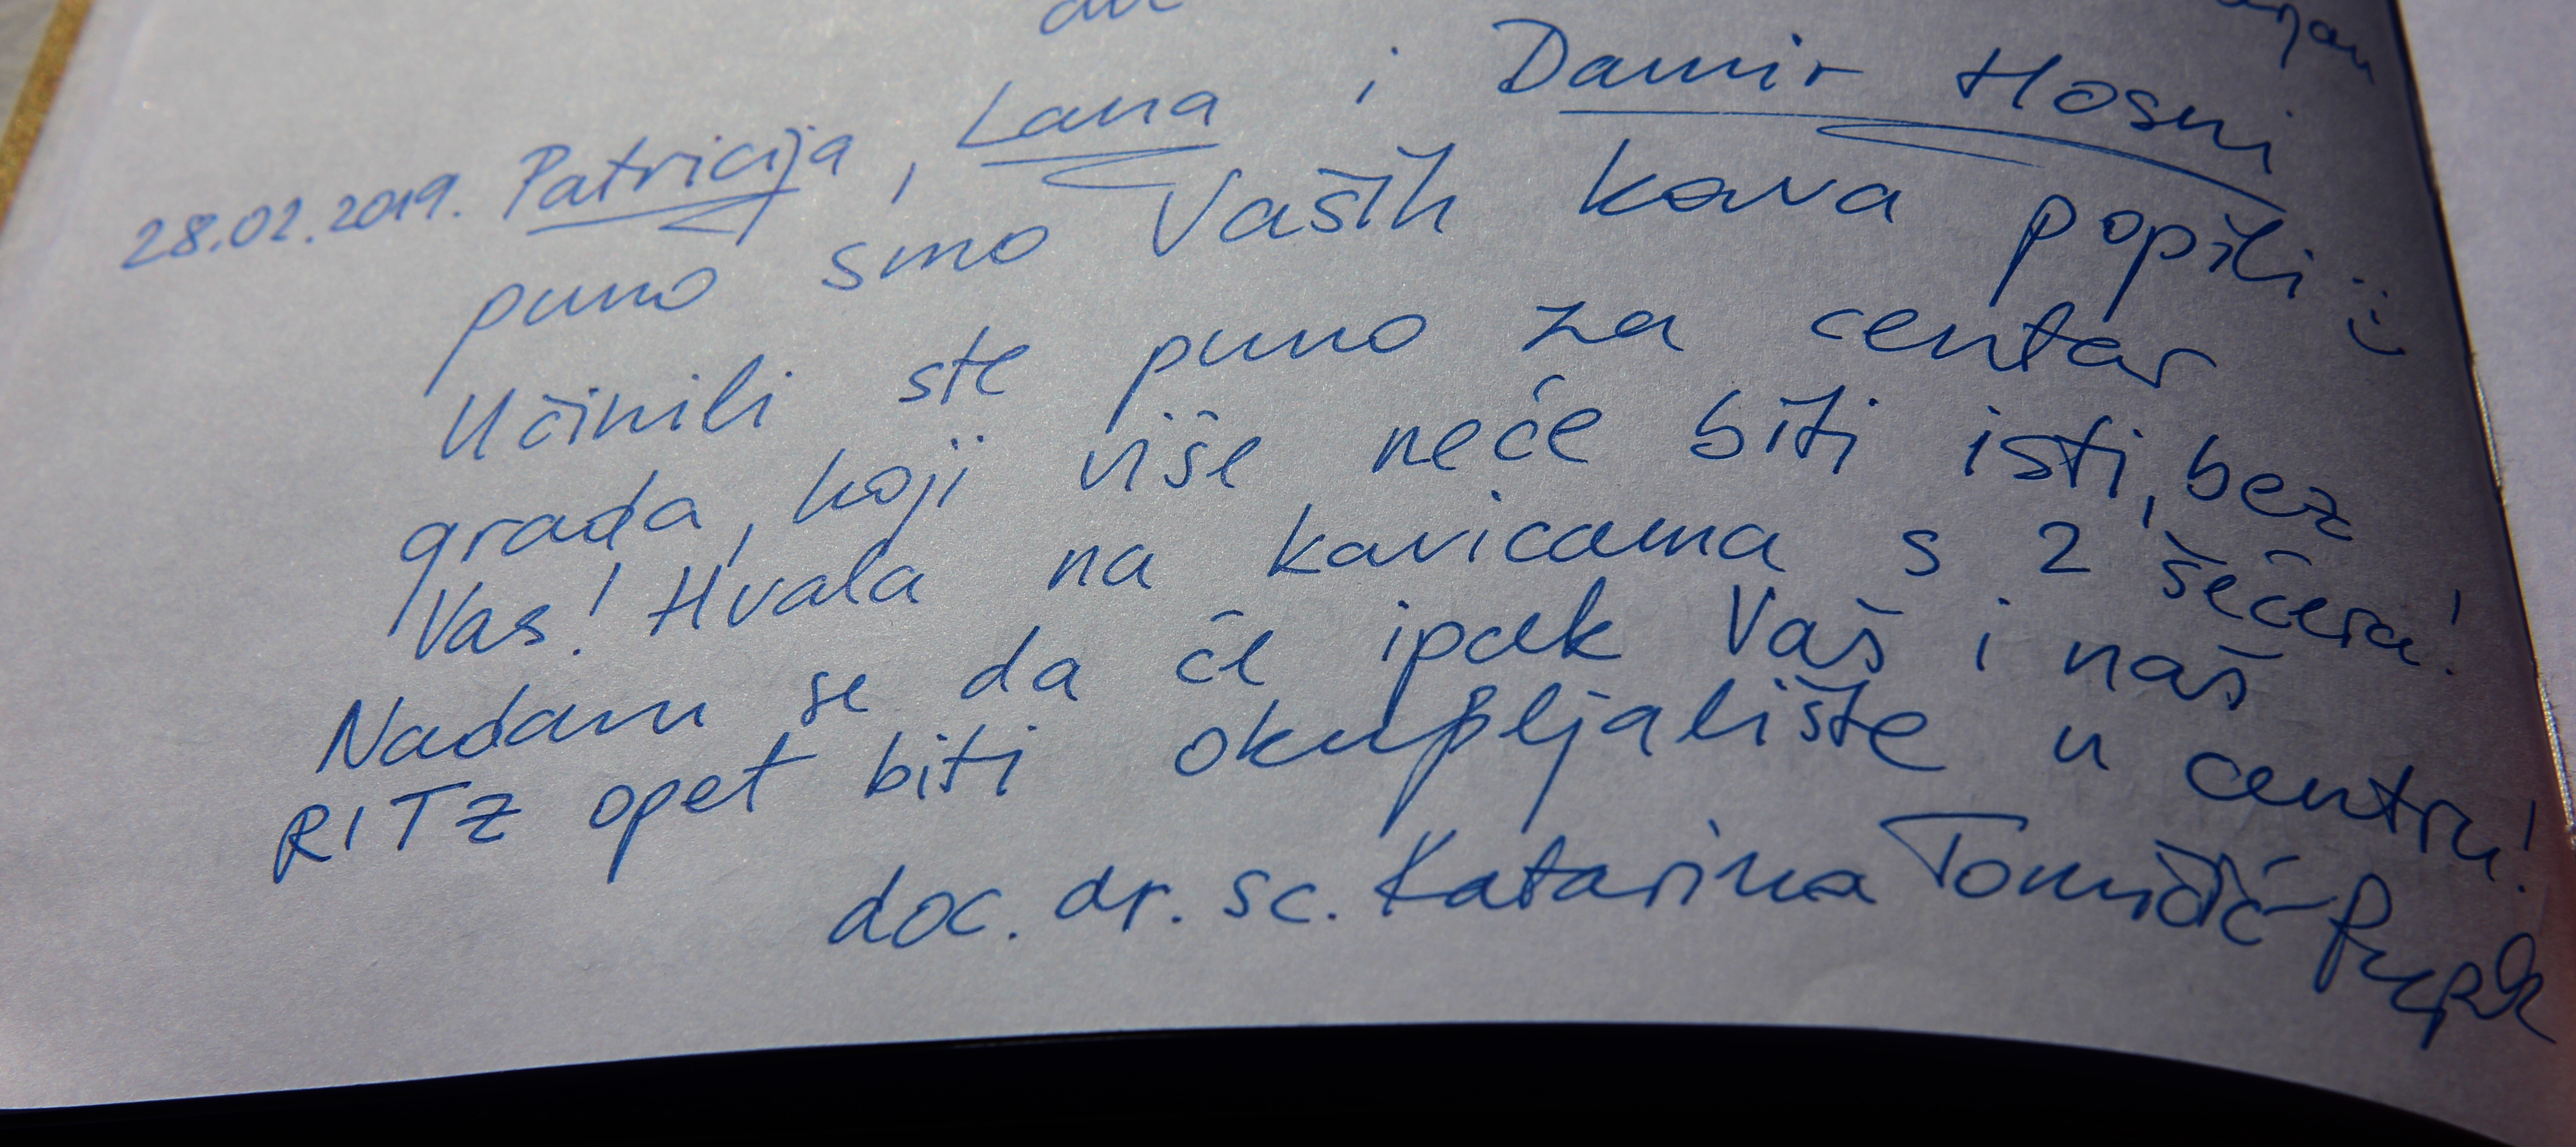 28.02.2019. Patricija, Lana i Damir Hosni
puno smo Vaših kava popili :)
Učinili ste puno za centar
grada, koji više neće biti isti, bez
Vas! Hvala na kavicama s 2 šećera!
Nadam se da će ipak Vaš i naš
RITZ opet biti okupljalište u centru!
doc. dr. sc. Katarina Tomičić-Pupek